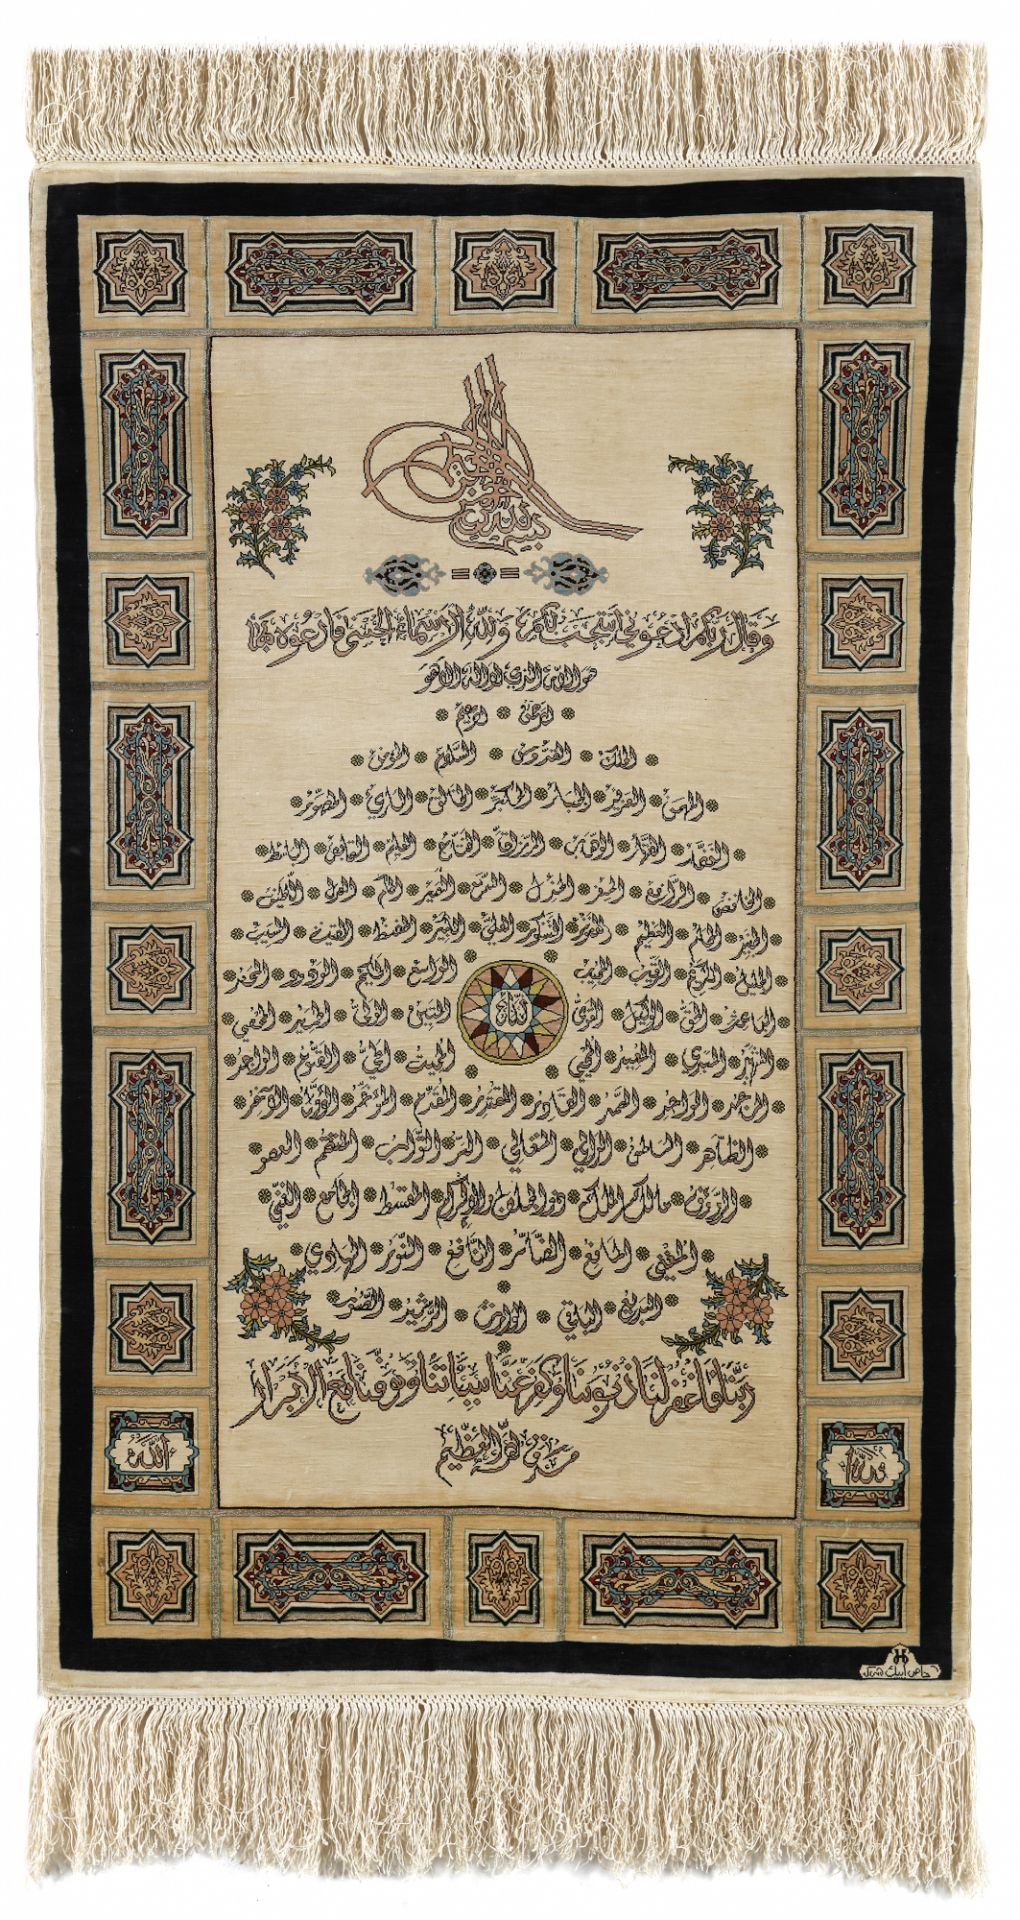 بسم الله الرحمن الرحيم
وقال ربكم ادعوني استجب لكم ولله الاسماء الحسنى فادعوه بها
هو الله الذي لا اله الا هو
الرحمن الرحيم
الملك القدوس السلام المؤمن
المهيمن العزيز الجبار المتكبر الخالق الباري المصور
الغفار القهار الوهاب الرزاق الفتاح العليم القابض الباسط
الخافض الرافع المعز المذل السميع البصير الحكم العدل اللطيف
الخبير الحليم العظيم الغفور الشكور العلي الكبير الحفيظ المقيت الحسيب
الجليل الكريم الرقيب المجيب الواسع الحكيم الودود المجيد
الباعث الحق الوكيل القوي المتين الولي الحميد المحصي
المبدي المعيد المحيي المميت الحي القيوم الواجد
الماجد الواحد الصمد القادر المقتدر المقدم المؤخر الاول الآخر
الظاهر الباطن الوالي المتعالي البر التواب المنتقم العفو
الرؤوف مالك الملك ذو الجلال والإكرام المقسط الجامع الغني
المغني المانع الضار النافع النور الهادي
البديع الباقي الوارث الرشيد الصبور
ربنا فاغفر لنا ذنوبنا وكفر عنا سيئاتنا وتوفنا مع الابرار
الله
الله